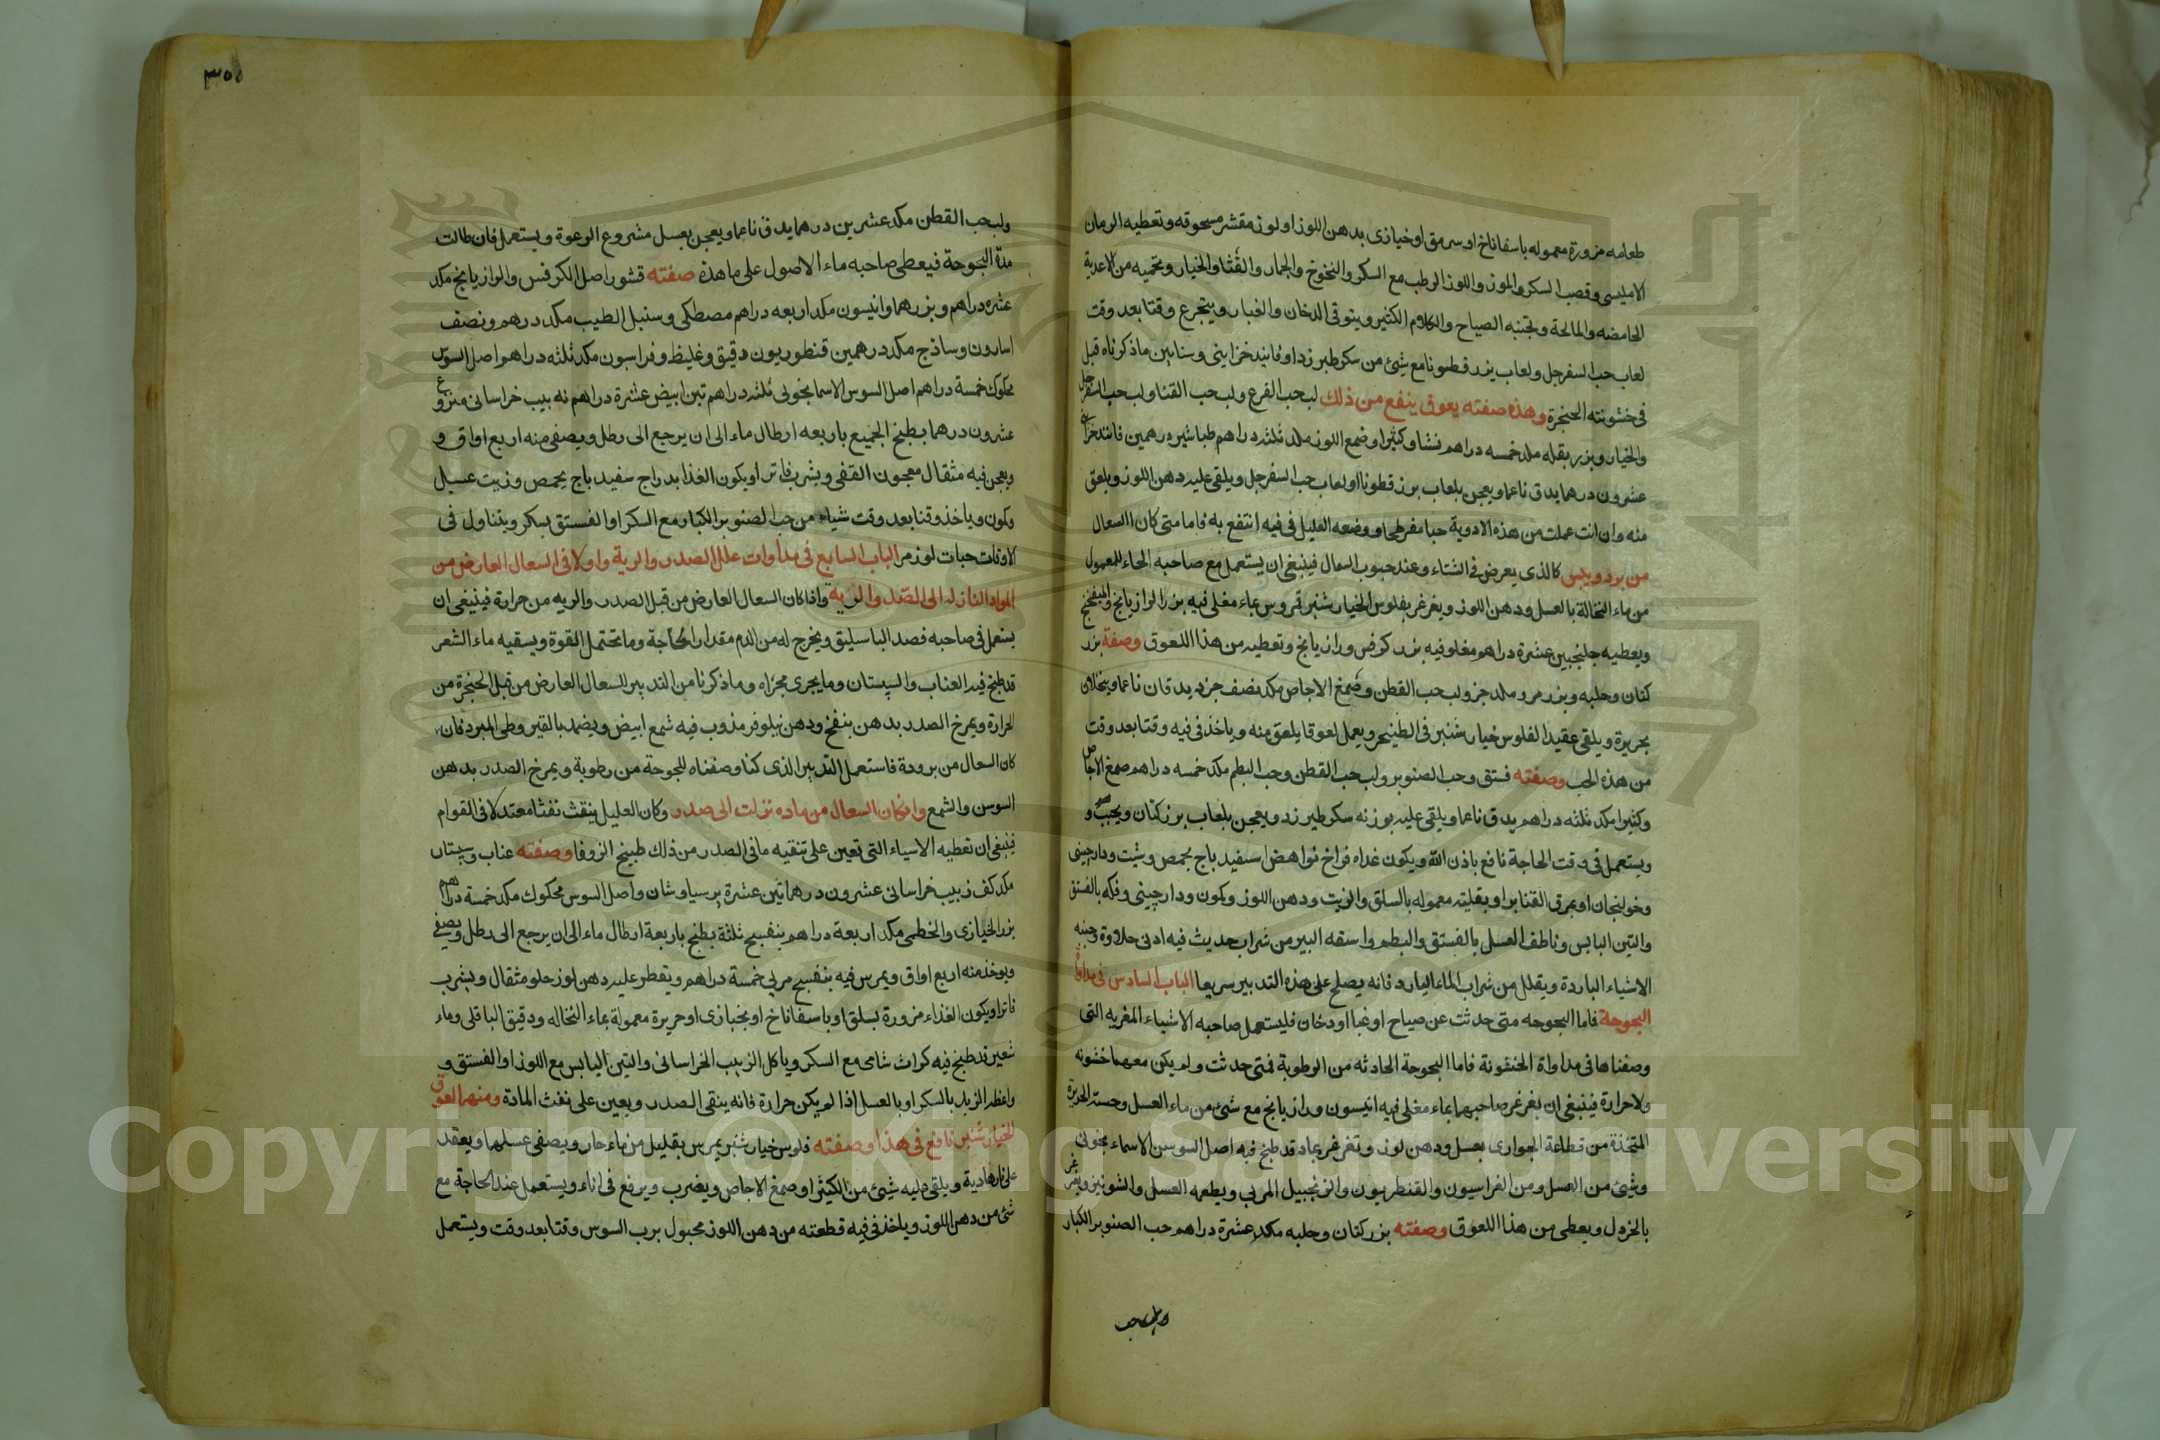 طعامه مزورة معموله باسفاناخ او سرمق او خبازى بدهن اللوز او لوز مقشر مسحوقه وتعطيه الرمان
الامليسى وقصب السكر والموز واللوز الرطب مع السكر والخوخ والجمار والقثا والخيار وتحميه من الاغدية
الحامضه والمالحة وتجنبه الصياح والكلام الكثير ويتوقى الدخان والغبار ويتجرع وقتا بعد وقت
لعاب حب السفرجل ولعاب بزر قطونا مع شئ من سكر طبرزد او فانيد خزاينى وسنابين ماذكرناه قبل
فى خشونته الحنجرة وهذه صفته يعوق ينفع من ذلك لب حب القرع ولب حب القثا ولب حب السفرجل
والخيار وبزر بقله مكد خمسه دراهم نشا وكثيرا وصمغ اللوز مكد ثلثه دراهم طباشير درهمين فانيد
عشرون درهما يدق ناعما ويعجن بلعاب بزر قطونا او لعاب حب السفرجل ويلقى عليه دهن اللوز ويلعق
منه وان انت عملت من هذه الادوية حبا مفرطحا ووضعه العليل فى فيه انتفع به فاما متى كان السعال
من برد ويبس كالذى يعرض فى الشتاء وعند هبوب الشمال فينبغى ان يستعمل مع صاحبه الحساء المعمول
من ماء النخالة بالعسل ودهن اللوز ويغرغر بفلوس الخيار شنبر قمروس بماء مغلى فيه بزر الرازيانج والبنفسج
ويعطيه جلنجبين عشرة دراهم مغلو فيه بزر كرفس ورازيانج وتعطيه من هذا اللعوق وصفة بزر
كتان وحلبه وبزر مرو مكد جزو لب حب القطن وصمغ الاجاص مكد نصف جزء يدقان ناعما وينخلان
بحريرة ويلقى عقيد الفلوس خيار شنبر فى الطينجر ويعمل لعوقا يلعق منه وياخذ فى فيه وقتا بعد وقت
من هذه الحب وصفته فستق وحب الصنوبر ولب حب القطن وحب البطم مكد خمسه دراهم صمغ الاجاص
وكثيرا مكد ثلثه دراهم يدق ناعما ويلقى عليه بوزنه سكر طبرزد ويعجن بلعاب بزر كتان ويحبب و
ويستعمل فى وقت الحاجة نافع باذن الله ويكون غداه فراخ نواهض اسفيدباج بحمص وشبت ودارچينى
وخولنجان او بمرق القنابر او بقليته معموله بالسلق والزيت ودهن اللوز وكمون ودارچينى وفكه بالفستق
والتين اليابس وناطف العسل بالفستق والبطم واسقه اليسير من شراب حديث فيه ادنى حلاوة وجنبه
الاشياء الباردة ويقلل من شراب الماء البارد فانه يصلح على هذه التدبير سريعا الباب السادس فى مداواة
البحوحة فاما البحوحه متى حدثت عن صياح او غبا او دخان فليستعمل صاحبه الاشياء المغريه التى
وصفناها فى مداواة الخشونة فاما البحوحة الحادثه من الرطوبة فمتى حدثت ولم يكن معها خشونه
ولا حرارة فينبغى ان يغرغر صاحبهما بماء مغلى فيه انيسون ورازيانج مع شئ من ماء العسل وحسه الحريرة
المتخذة من قطاعة الحوارى بعسل ودهن لوز وتغرغر بماء قد طبخ فيه اصل السوسن الاسمانجونى
وشئ من العسل ومن الفراسيون والقنطريون والزنجبيل المربى ويطعه العسل والشونيز ويغرغر
بالخردل ويعطى من هذا اللعوق وصفته بزر كتان وحلبه مكد عشرة دراهم حب الصنوبر الكبار
٣٥٥
ولب حب القطن مكد عشرين درهما يدق ناعما ويعجن بعسل مشروع الرغوة ويستعمل فان طالت
مدة البحوحة فيعطى صاحبه ماء الاصول على ما هذة صفته قشور اصل الكرفس والرازيانج مكد
عشره دراهم وبزرهما وانيسون مكد اربعه دراهم مصطكى وسنبل الطيب مكد درهم ونصف
اسارون وساذج مكد درهمين قنطوريون دقيق وغليظ وفراسيون مكد ثلثه دراهم اصل السوس
محكوك خمسة دراهم اصل السوس الاسمانجونى ثلثه دراهم تين ابيض عشرة دراهم زبيب خراسانى منزوع
عشرون درهما يطبخ الجميع باربعه ارطال ماء الى ان يرجع الى رطل ويصفى منه اربع اواق و
ويعجن فيه مثقال معجون القفى ويشرب فاترا ويكون الغذا بدراج سفيدباج بحمص وزيت عسيل
وكمون وياخذ وقتا بعد وقت شياء من حب الصنوبر الكبار مع السكر او الفستق بسكر ويتناول فى
الاوقات حبات لوز مر الباب السابع فى مداوات علل الصدر والرية واولا فى السعال العارض من
المواد النازله الى الصدر والرية واذا كان السعال العارض من قبل الصدر والريه من حرارة فينبغى ان
يستعمل فى صاحبه فصد الباسليق ويخرج له من الدم مقدار الحاجة وما تحتمل القوة ويسقيه ماء الشعر
قد طبخ فيه العناب والسپستان وما يجرى مجراه وما ذكرنا من التدبير للسعال العارض من قبل الحنجرة من
الحرارة ويمرخ الصدر بدهن بنفسج ودهن نيلوفر مذوب فيه شمع ابيض ويضمد بالقيروطى المبرد فان
كان السعال من برودة فاستعمل التدبير الذى كنا وصفناه للبحوحة من رطوبة ويمرخ الصدر بدهن
السوسن والشمع وان كان السعال من ماده نزلت الى صدر وكان العليل ينفث نفثا معتدلا فى القوام
فينبغى ان تعطيه الاسياء التى تعين على تنقيه ما فى الصدر من ذلك طبيخ الزوفا وصفته عناب وسپستان
مكد كف زبيب خراسانى عشرون درهما تين عشرة پرسياوشان واصل السوس محكوك مكد خمسة دراهم
بزر الخبازى والخطمى مكد اربعة دراهم بنفسج ثلثة يطبخ باربعة ارطال ماء الى ان يرجع الى رطل ويصفى
ويوخذ منه اربع اواق ويمرس فيه بنفسج مربى خمسة دراهم ويقطر عليه دهن لوز حلو مثقال ويشرب
فاترا ويكون الغذاء مزورة بسلق او باسفاناخ او بخبازى او حريرة معمولة بماء النخاله ودقيق الباقلى وماء
شعير قد طبخ فيه كراث شامى مع السكر وياكل الزبيب الخراسانى والتين اليابس مع اللوز او الفستق و
واعظه الزبد بالسكر او بالعسل اذا لم يكن حرارة فانه ينقى الصدر ويعين على نفث المادة ومنهم العوق
الخيار شنبر نافع فى هذا وصفته فلوس خيار شنبر يمرس بقليل من ماء حار ويصفى عسلها ويعقد
على نار هادية ويلقى عليه شئ من الكثيرا وصمغ الاجاص ويضرب ويرفع فى اناء ويستعمل عند الحاجة مع
شئ من دهن اللوز وياخذ فى فيه قطعته من دهن اللوز مجبول برب السوس وقتا بعد وقت ويستعمل
Copyright © King Saud University